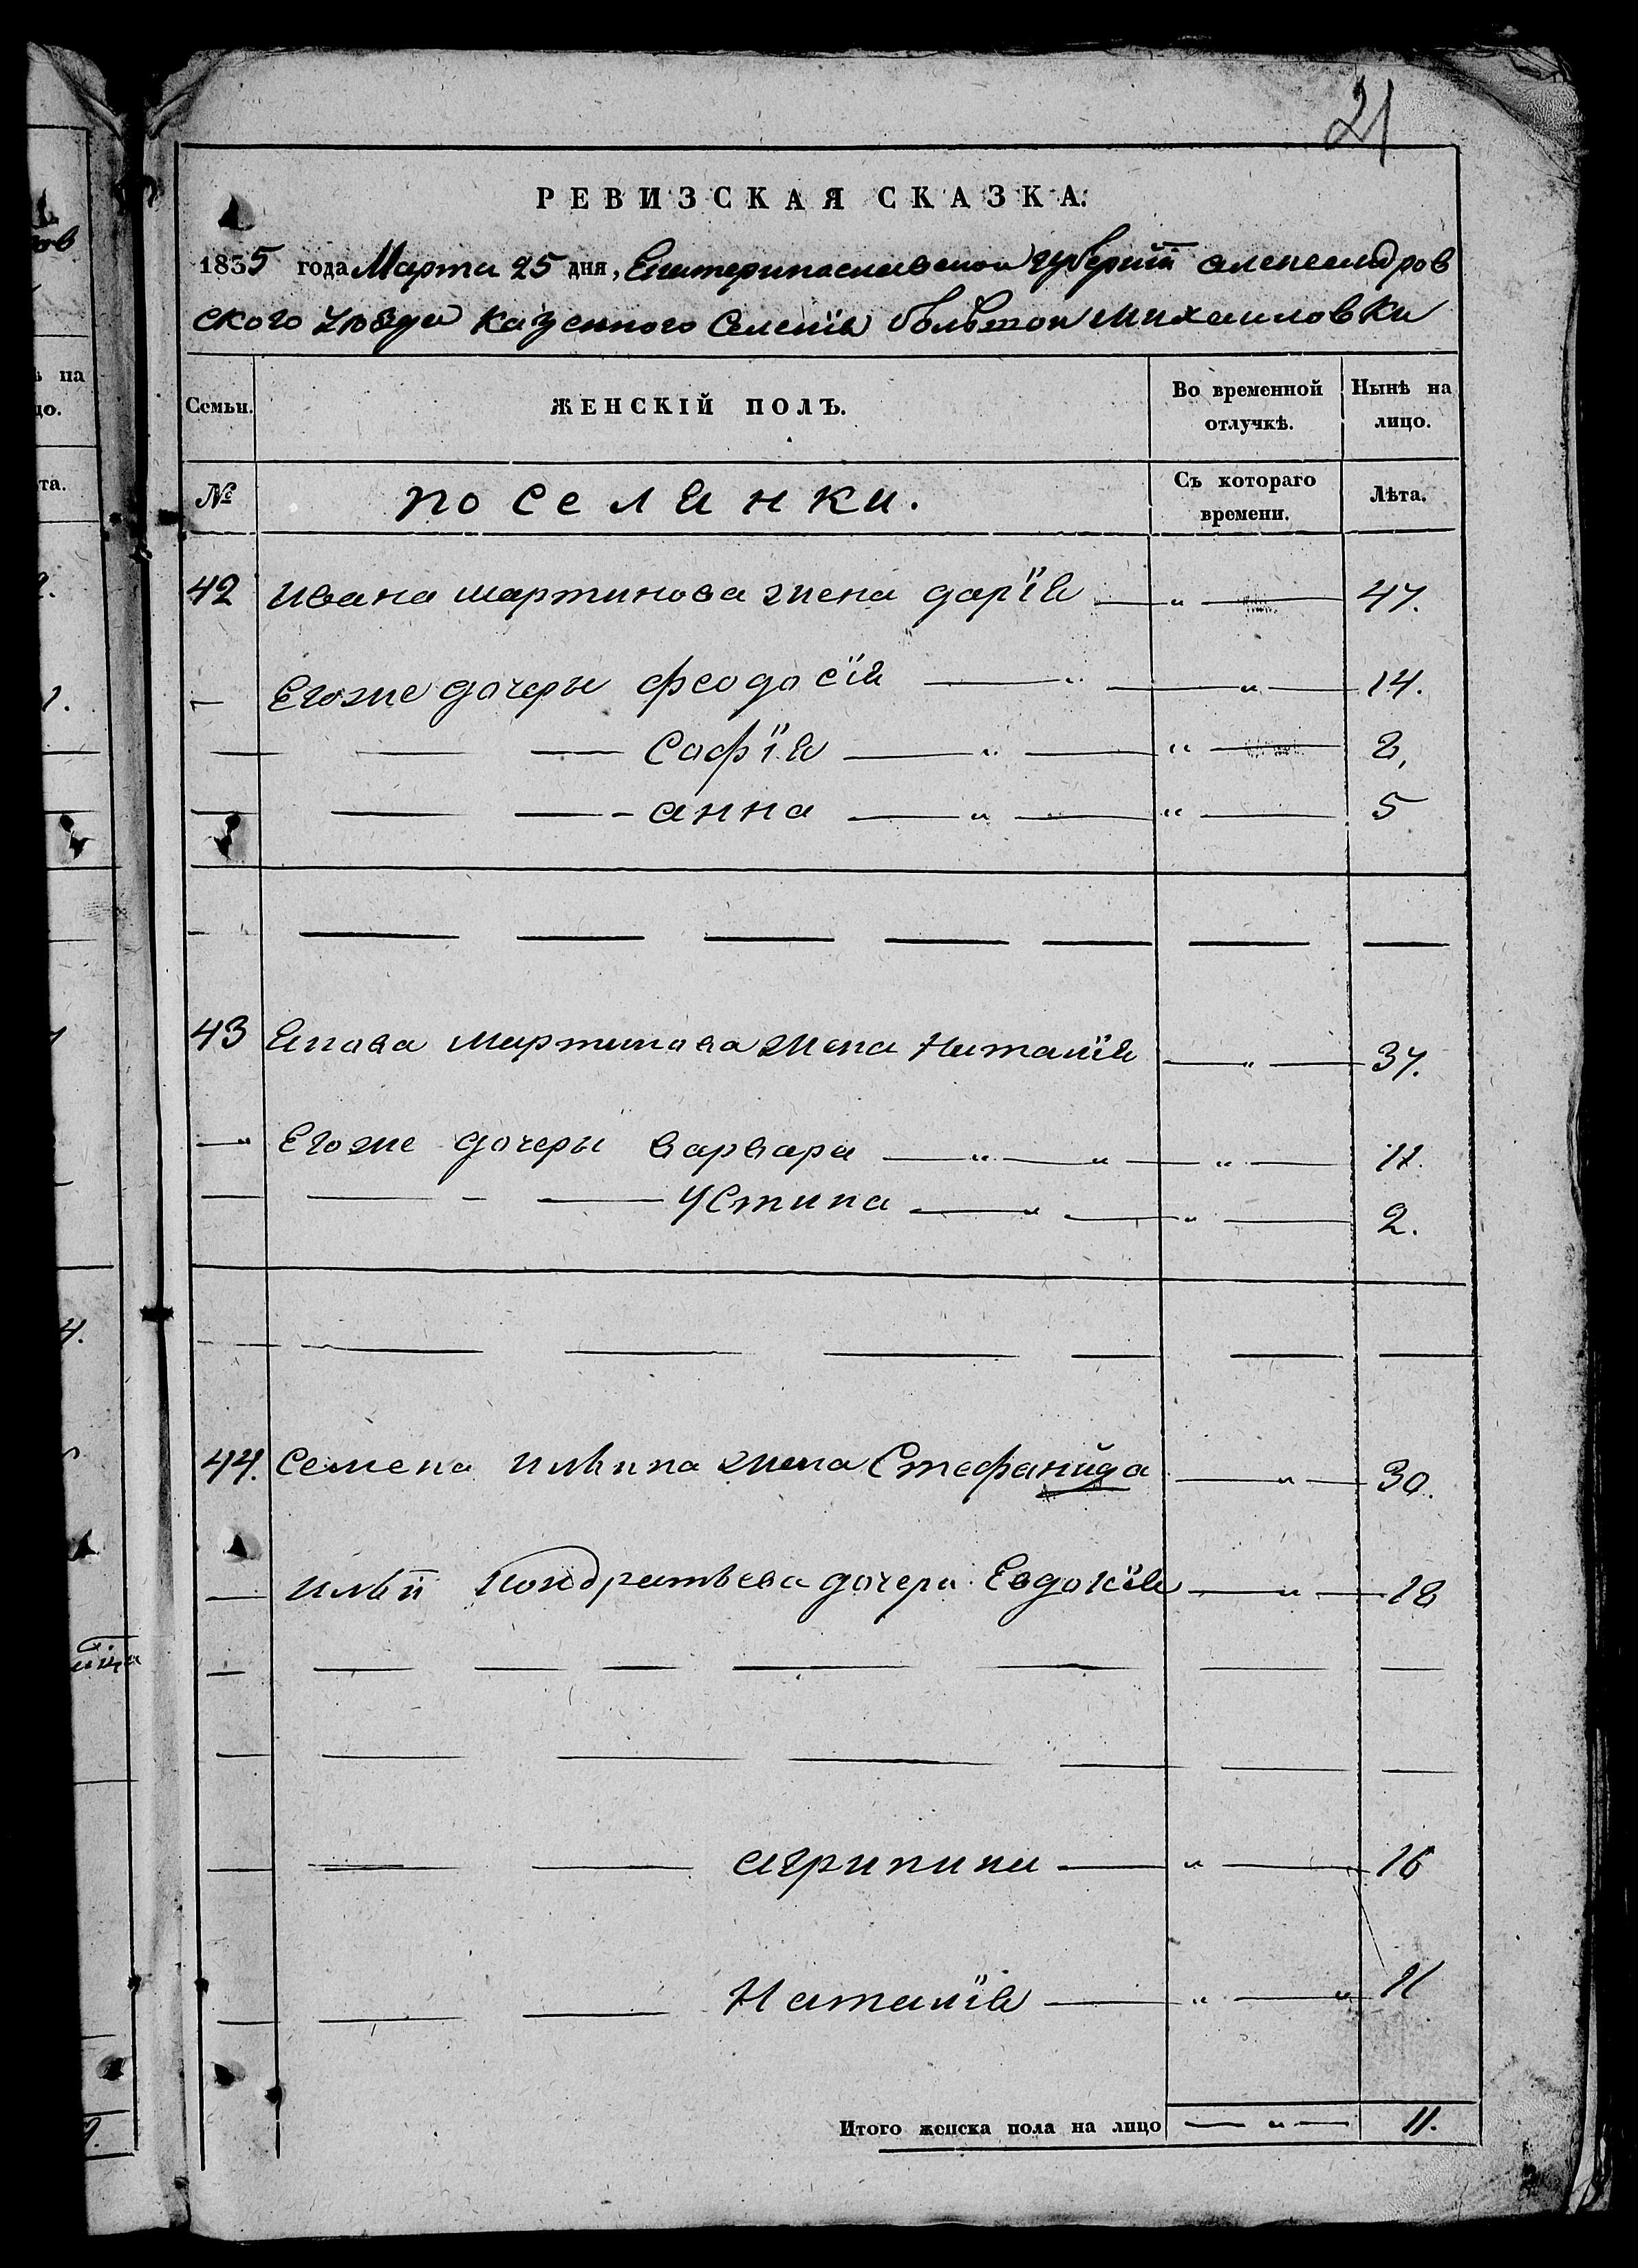 21
РЕВИЗСКАЯ СКАЗКА.
1835 года Марта 25 дня, Екатеринославской губерніи александров
ского уѣзда казенного Селенія больтой михаиловки
Семьи. ЖЕНСКІЙ ПОЛЪ. Во временной отлучкѣ. Нынѣ на лицо.
№ поселянки. Съ котораго времени. Лѣта.
42 ивана мартинова жена дарїя — „ — 47.
— Егоже дочеры феодосїя — „ — „ — 14.
— — — Софїя — „ — „ — 8,
— — — анна — „ — „ — 5
43 Якова мартинова жена Наталїя — „ — 37.
— „ Егоже дочеры варвара — „ — „ — „ — 11.
— — — Устина — „ — „ — 2.
44. Семена ильина жена Стефанида — „ — 30.
— ильи Кондратьева дочери Евдокїя — „ — 18
— — — агрипина — „ — 16
— — — Наталїя — „ — „ 11
Итого женска пола на лицо — „ — 11.